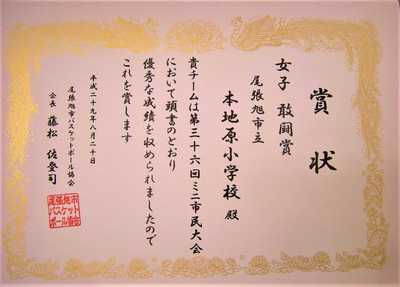 賞状
女子 敢闘賞
尾張旭市立
本地原小学校 殿
貴チームは第三十六回ミニ市民大会
において頭書のとおり
優秀な成績を収められましたので
これを賞します
平成二十九年八月二十日
尾張旭市バスケットボール協会
会長 藤松 佐登司